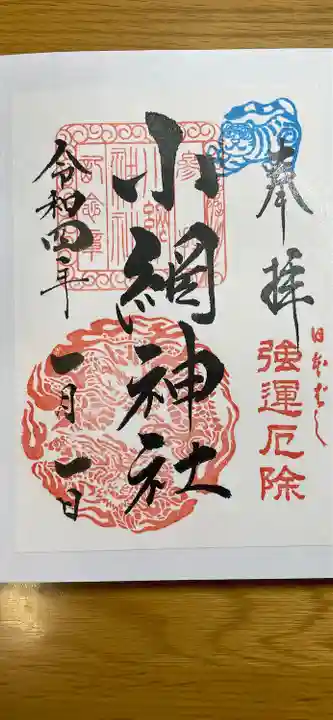 奉拝
日本ばし
強運厄除
小網神社
令和四年
一月一日